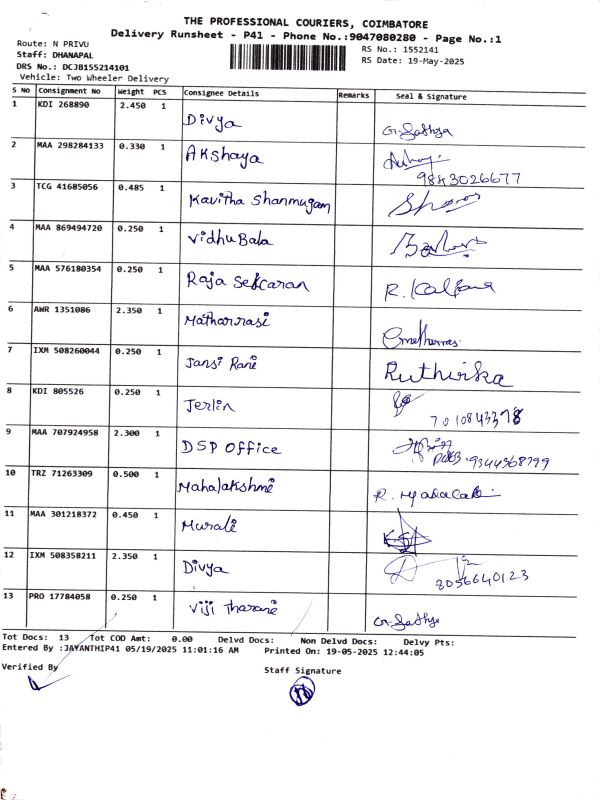 THE PROFESSIONAL COURIERS, COIMBATORE
Delivery Runsheet - P41 - Phone No.:9047080280 - Page No.:1
Route: N PRIVU
RS No.: 1552141
Staff: DHANAPAL
RS Date: 19-May-2025
DRS No.: DCJB155214101
Vehicle: Two Wheeler Delivery
S No Consignment No Weight PCS Consignee Details Remarks Seal & Signature
1 KDI 268890 2.450 1 Divya G. Sathya
2 MAA 298284133 0.330 1 Akshaya
9843026677
3 TCG 41685056 0.485 1 Kavitha Shanmugam
4 MAA 869494720 0.250 1 Vidhu Bala
5 MAA 576180354 0.250 1 Raja Sekaran R. Kalpana
6 AWR 1351086 2.350 1 Matharrasi
7 IXM 508260044 0.250 1 Jansi Rani Ruthirka
8 KDI 805526 0.250 1 Jerlin
9 MAA 707924958 2.300 1 DSP Office
9344368799
10 TRZ 71263309 0.500 1 Mahalakshmi
11 MAA 301218372 0.450 1 Murali
12 IXM 508358211 2.350 1 Divya
8056640123
13 PRO 17784058 0.250 1 Viji Tharani G. Sathya
Tot Docs: 13 Tot COD Amt: 0.00 Delvd Docs: Non Delvd Docs: Delvy Pts:
Entered By :JAYANTHIP41 05/19/2025 11:01:16 AM Printed On: 19-05-2025 12:44:05
Verified By Staff Signature